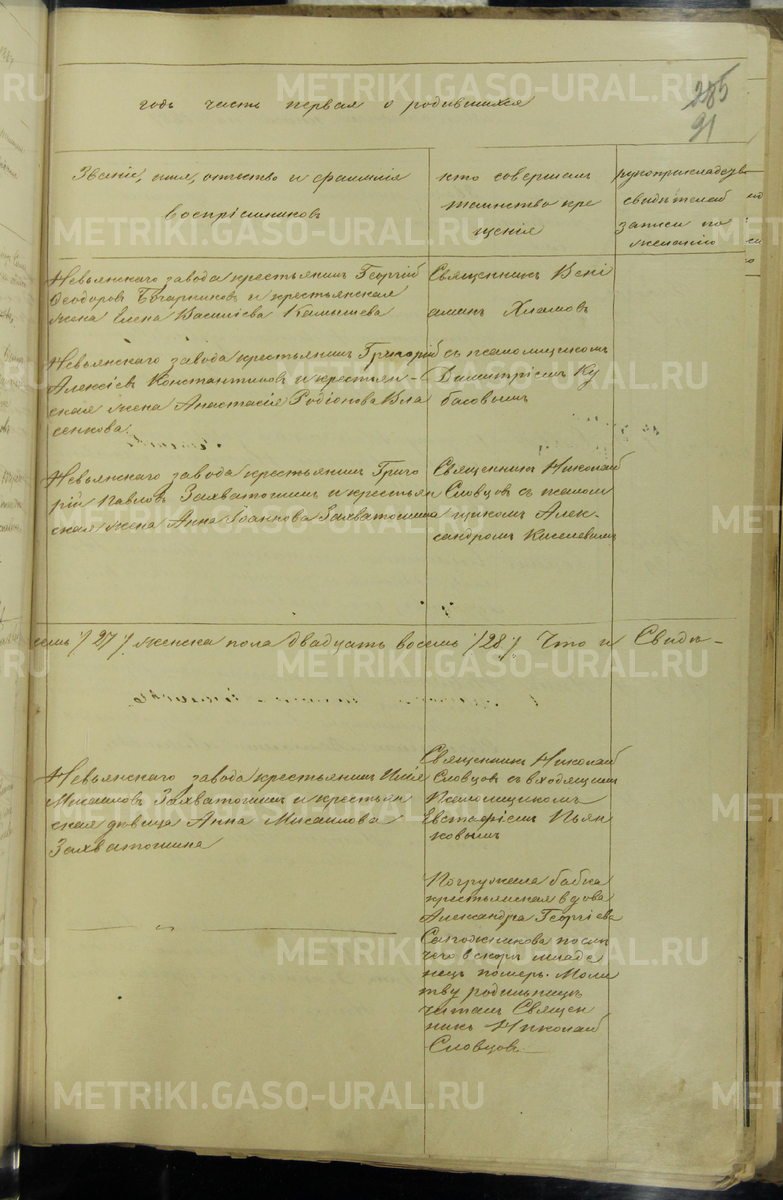 METRIKI.GASO-URAL.RU
285
91
годъ часть первая о родившихся
Званіе, имя, отчество и фамилія
воспріемниковъ
кто совершалъ
таинство кре
щенія
рукоприкладство
свидѣтелей
записи по
желанію
Невьянскаго завода крестьянинъ Георгій
Ѳеодоровъ и крестьянская
жена Елена Василіева Камышева
Священникъ Вені
аминъ Хламовъ
Невьянскаго завода крестьянинъ Григорій
Алексіевъ Константиновъ и крестьян-
ская жена Анастасія Родіонова Вла
сенкова
съ псаломщикомъ
Димитріемъ Ку
басовымъ
Невьянскаго завода крестьянинъ Григо
рій Павловъ Захватошинъ и крестьян
ская жена Анна Іоаннова Захватошина
Священникъ Николай
Словцовъ съ псалом
щикомъ Алек-
сандромъ Киселевымъ
семь /27/ женска пола двадцать восемь /28/. Что и Свидѣ-
Невьянскаго завода крестьянинъ Илія
Михаиловъ Захватошинъ и крестьян
ская дѣвица Анна Михаилова
Захватошина
Священникъ Николай
Словцовъ съ входящимъ
Псаломщикомъ
Евстафіемъ Пьян
ковымъ
Погружала бабка
крестьянская вдова
Александра Георгіева
Сапожникова послѣ
чего вскорѣ младе
нецъ померъ. Моли
тву родильницѣ
читалъ Священ
никъ Николай
Словцовъ